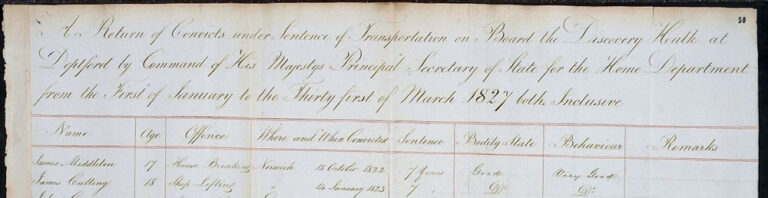 50
A Return of Convicts under Sentence of Transportation on Board the Discovery Hulk at
Deptford by Command of His Majestys Principal Secretary of State for the Home Department
from the First of January to the Thirty first of March 1827 both Inclusive
Name Age Offence Where and When Convicted Sentence Bodily State Behaviour Remarks
James Middleton 17 House Breaking Norwich 18 October 1822 7 Years Good Very Good
James Cutting 18 Shop Lifting " 14 January 1823 7 " Do. Do.